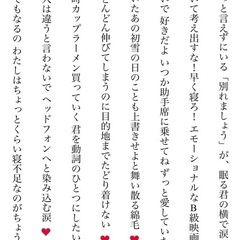 と言えずにいる「別れましょう」が、眠る君の横で涙
いて考え出すな！早く寝ろ！エモーショナルなB級映画
で 好きだよ いつか助手席に乗せてね ずっと愛していた
いたあの初雪の日のことも上書きせよと舞い散る綿毛♥
どんどん伸びてしまうのに目的地までたどり着けない♥
カップラーメン買っていく 君を動詞のひとつにしたい
は違うと言わないで ヘッドフォンへと染み込む涙♥
もなるの わたしはちょっとくらい寝不足なのがちょう